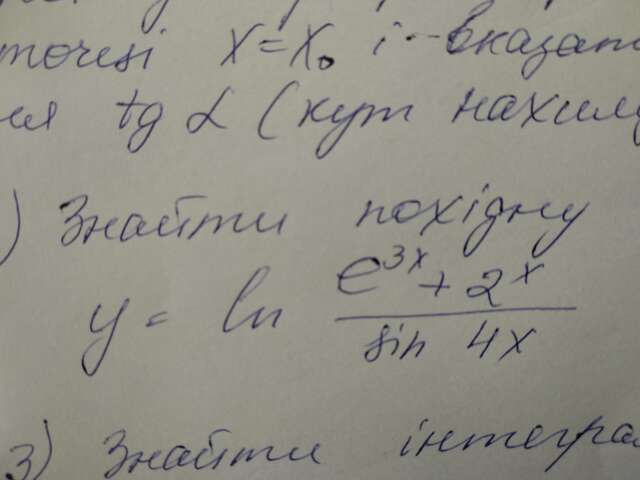 точці x = x₀ і вказати
tg α (кут нахилу
) Знайти похідну
y = ln \frac{e^{3x} + 2^x}{sin 4x}
3) Знайти інтеграл